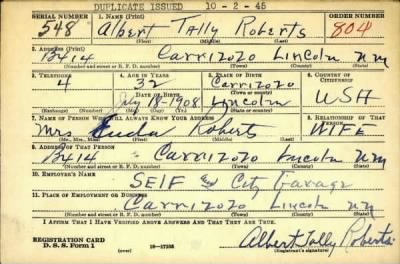 DUPLICATE ISSUED 10-2-45
SERIAL NUMBER 1. NAME (Print) ORDER NUMBER
548 Albert Tally Roberts 804
(First) (Middle) (Last)
2. ADDRESS (Print)
Bx 14 Carrizozo Lincoln N M
(Number and street or R. F. D. number) (Town) (County) (State)
3. TELEPHONE 4. AGE IN YEARS 5. PLACE OF BIRTH 6. COUNTRY OF CITIZENSHIP
4 32 Carrizozo
DATE OF BIRTH (Town or county)
July 18-1908 Lincoln USA
(Exchange) (Number) (Mo.) (Day) (Yr.) (State or country)
7. NAME OF PERSON WHO WILL ALWAYS KNOW YOUR ADDRESS 8. RELATIONSHIP OF THAT PERSON
Mrs Roberts WIFE
(Mr., Mrs., Miss) (First) (Middle) (Last)
9. ADDRESS OF THAT PERSON
Bx 14 Carrizozo Lincoln N M
(Number and street or R. F. D. number) (Town) (County) (State)
10. EMPLOYER'S NAME
SELF City Garage
11. PLACE OF EMPLOYMENT OR BUSINESS
Carrizozo Lincoln N M
(Number and street or R. F. D. number) (Town) (County) (State)
I AFFIRM THAT I HAVE VERIFIED ABOVE ANSWERS AND THAT THEY ARE TRUE.
REGISTRATION CARD
D. S. S. Form 1 16-17105 Albert Tally Roberts
(Registrant's signature)